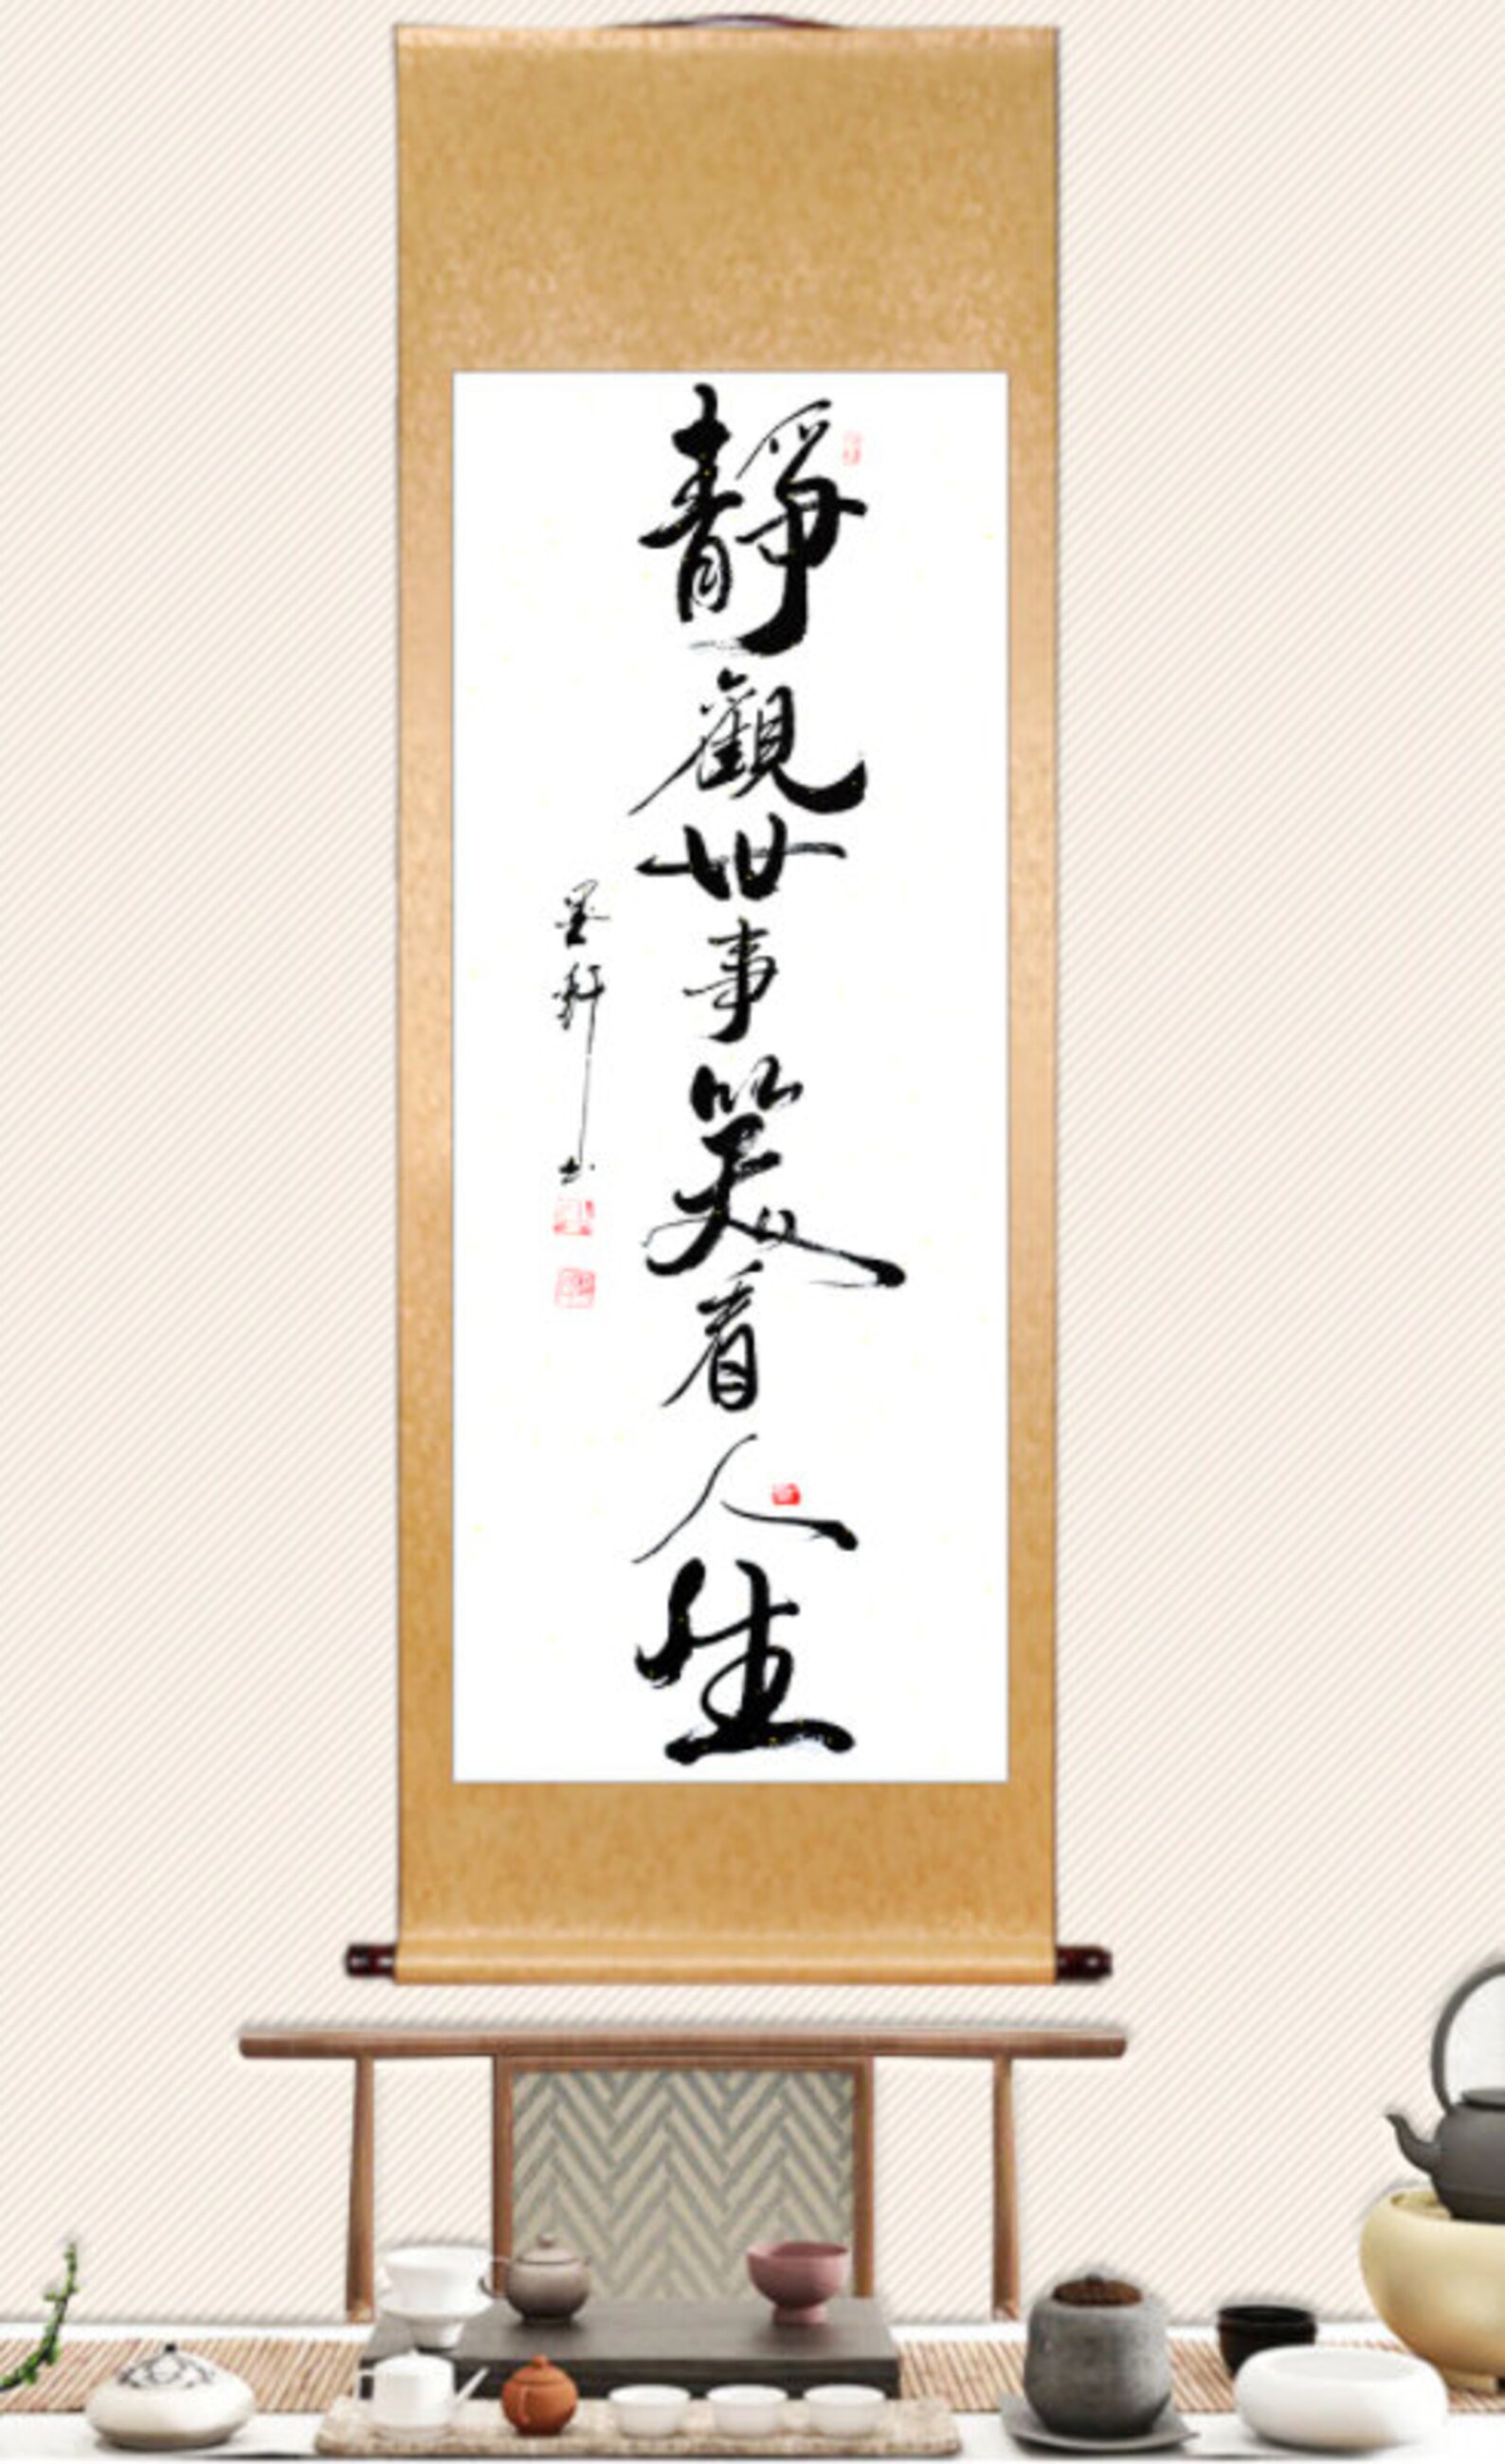 靜觀世事笑看人生
墨軒书